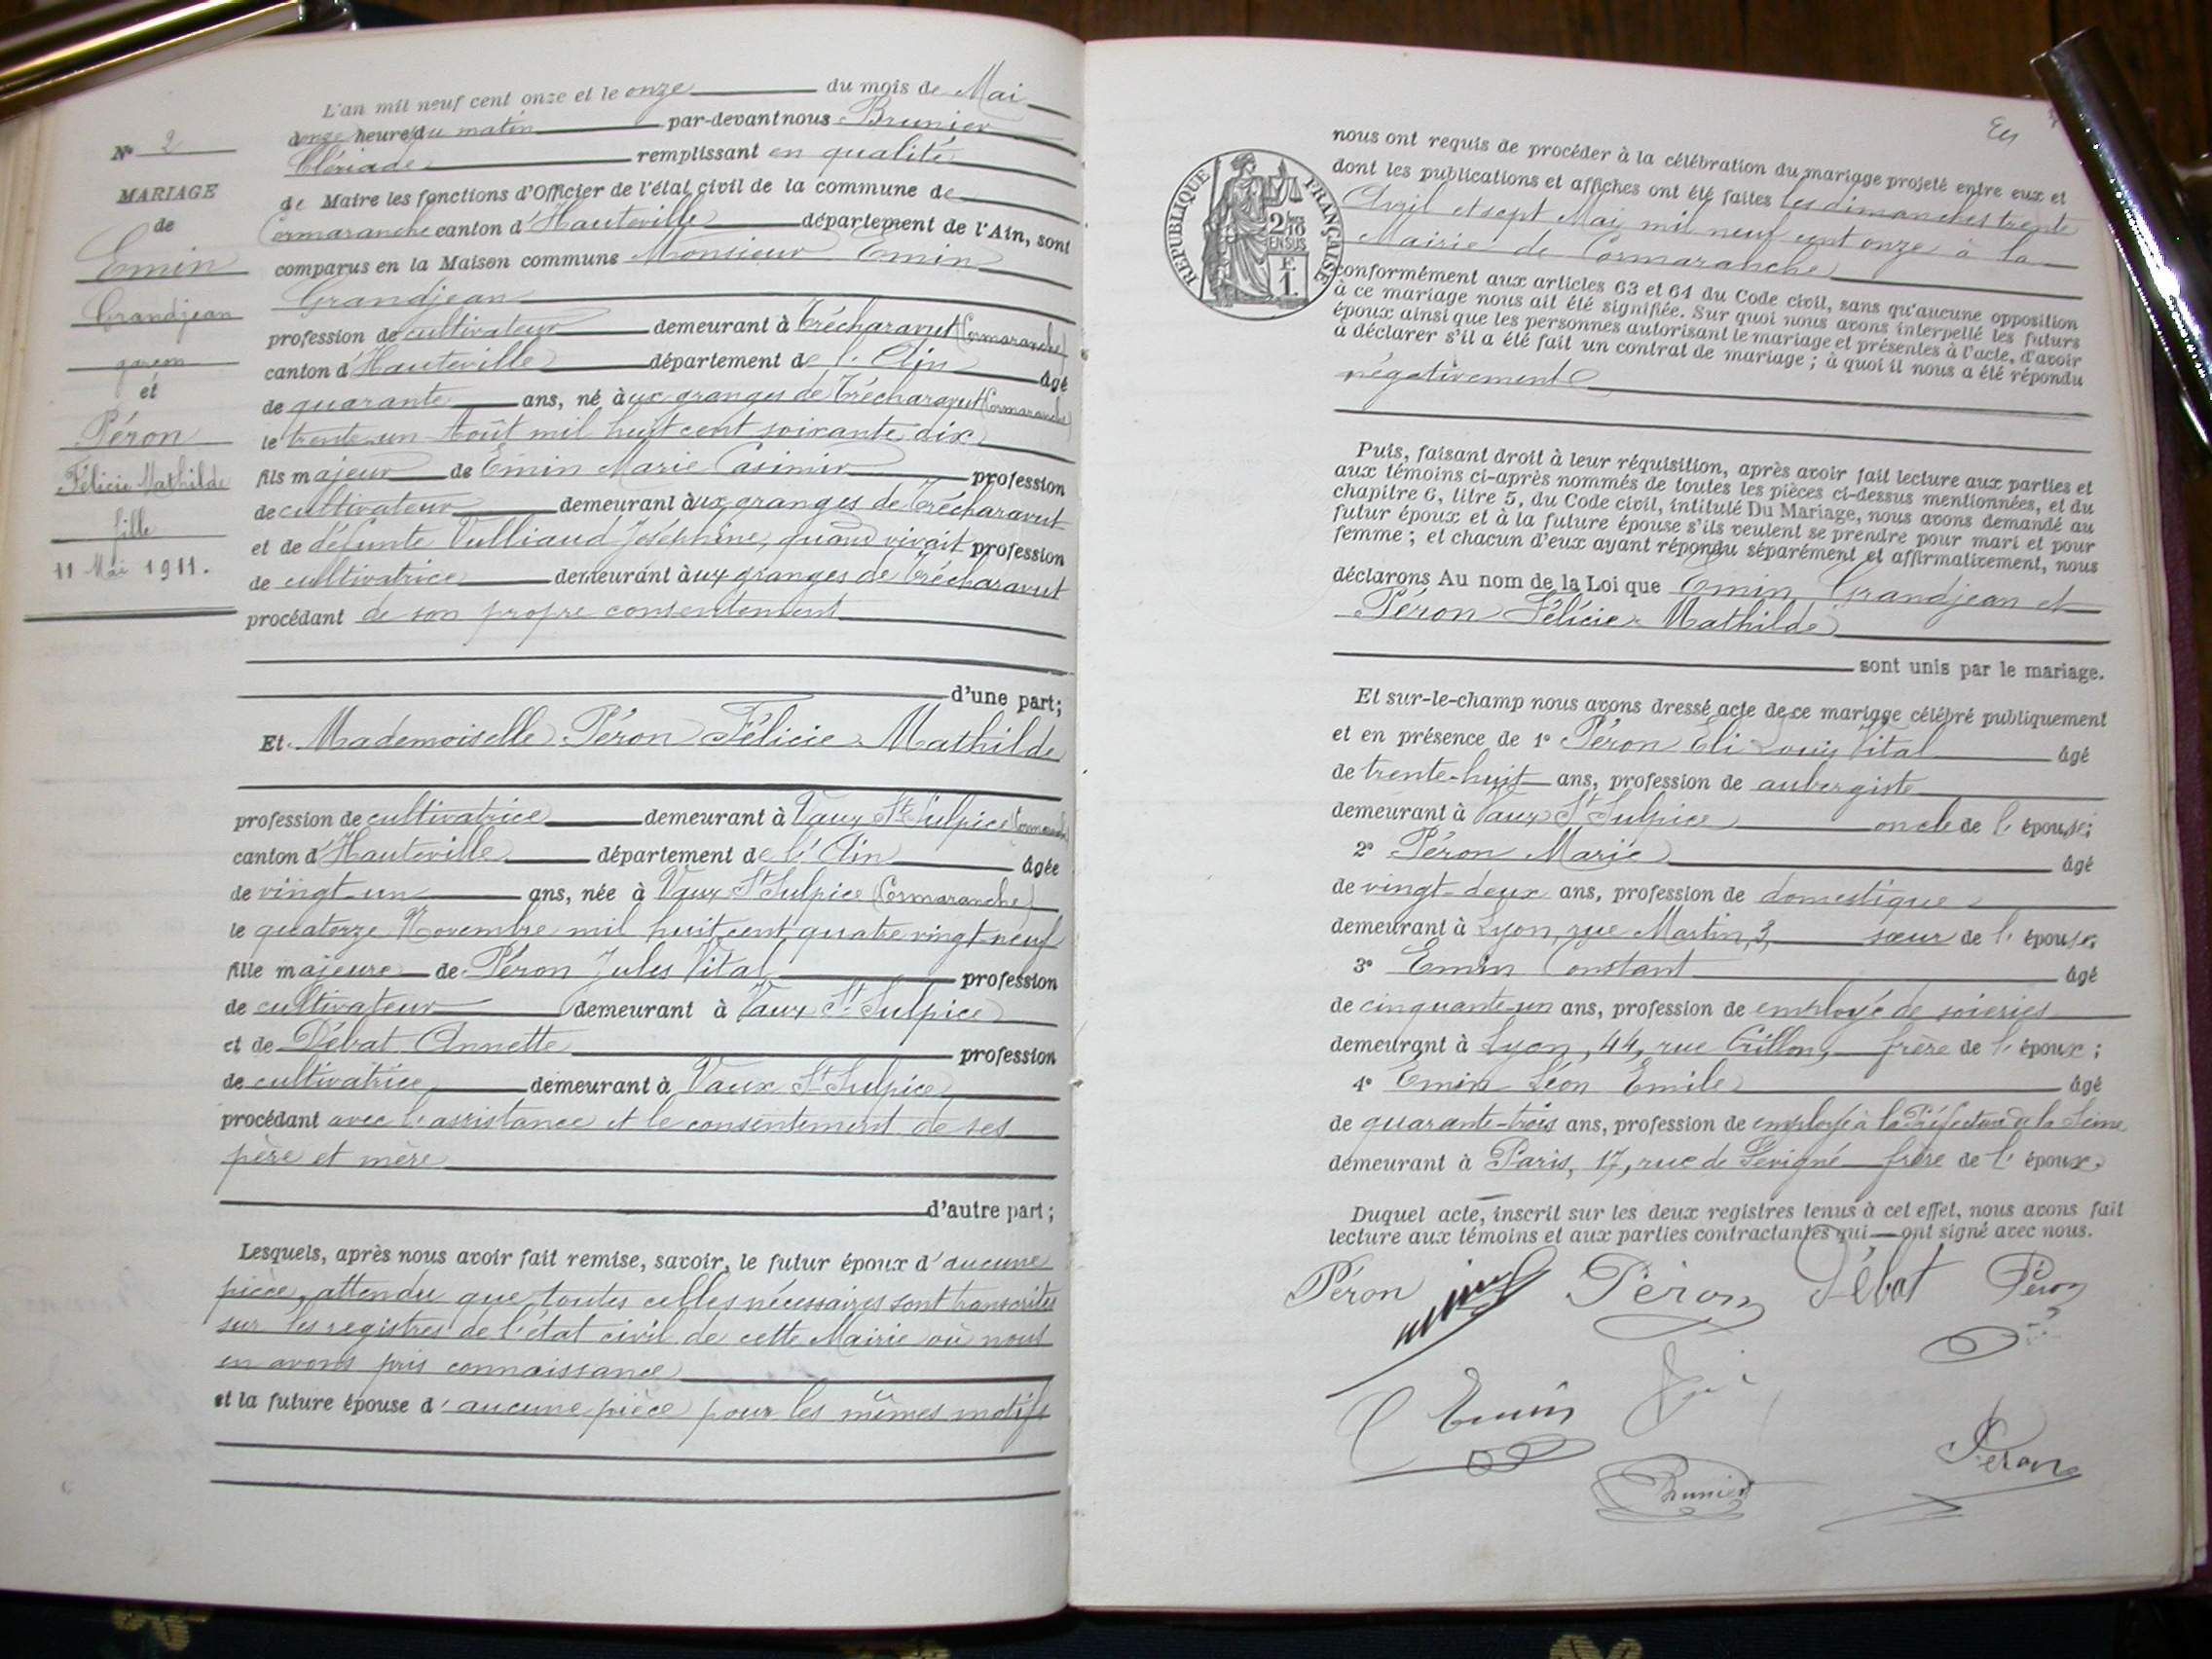 N° 2
MARIAGE
de
Emin
Grandjean
garçon
et
Péron
Félicie Mathilde
fille
11 Mai 1911.
L'an mil neuf cent onze et le onze du mois de Mai
onze heures du matin par-devant nous Brunier
Clériade remplissant en qualité
de Maire les fonctions d'Officier de l'état civil de la commune de
Cormaranche canton d'Hauteville département de l'Ain, sont
comparus en la Maison commune Monsieur Emin
Grandjean
profession de cultivateur demeurant à Trécharavut (Cormaranche)
canton d'Hauteville département de l'Ain âgé
de quarante ans, né aux granges de Trécharavut (Cormaranche)
le trente-un Août mil huit cent soixante dix
fils majeur de Emin Marie Casimir profession
de cultivateur demeurant aux granges de Trécharavut
et de défunte Vulliaud Joséphine, quand vivait profession
de cultivatrice demeurant aux granges de Trécharavut
procédant de son propre consentement
d'une part;
Et Mademoiselle Péron Félicie Mathilde
profession de cultivatrice demeurant à Vaux St Sulpice (Cormaranche)
canton d'Hauteville département de l'Ain âgée
de vingt-un ans, née à Vaux St Sulpice (Cormaranche)
le quatorze Novembre mil huit cent quatre vingt-neuf
fille majeure de Péron Jules Vital profession
de cultivateur demeurant à Vaux St Sulpice
et de Débat Annette profession
de cultivatrice demeurant à Vaux St Sulpice
procédant avec l'assistance et le consentement de ses
père et mère
d'autre part;
Lesquels, après nous avoir fait remise, savoir, le futur époux d'aucune
pièce, attendu que toutes celles nécessaires sont transcrites
sur les registres de l'état civil de cette Mairie où nous
en avons pris connaissance
et la future épouse d'aucune pièce pour les mêmes motifs
nous ont requis de procéder à la célébration du mariage projeté entre eux et
dont les publications et affiches ont été faites les dimanches trente
Avril et sept Mai mil neuf cent onze à la
Mairie de Cormaranche
RÉPUBLIQUE FRANÇAISE
2/10
EN SUS
F.
1.
conformément aux articles 63 et 64 du Code civil, sans qu'aucune opposition
à ce mariage nous ait été signifiée. Sur quoi nous avons interpellé les futurs
époux ainsi que les personnes autorisant le mariage et présentes à l'acte, d'avoir
à déclarer s'il a été fait un contrat de mariage; à quoi il nous a été répondu
négativement
Puis, faisant droit à leur réquisition, après avoir fait lecture aux parties et
aux témoins ci-après nommés de toutes les pièces ci-dessus mentionnées, et du
chapitre 6, titre 5, du Code civil, intitulé Du Mariage, nous avons demandé au
futur époux et à la future épouse s'ils veulent se prendre pour mari et pour
femme; et chacun d'eux ayant répondu séparément et affirmativement, nous
déclarons Au nom de la Loi que Emin Grandjean et
Péron Félicie Mathilde
sont unis par le mariage.
Et sur-le-champ nous avons dressé acte de ce mariage célébré publiquement
et en présence de 1° Péron Eli Louis Vital âgé
de trente-huit ans, profession de aubergiste
demeurant à Vaux St Sulpice oncle de l'épouse;
2° Péron Marie âgé
de vingt-deux ans, profession de domestique
demeurant à Lyon, rue Martin, 3, sœur de l'épouse;
3° Emin Constant âgé
de cinquante-un ans, profession de employé de soieries
demeurant à Lyon, 44, rue Crillon, frère de l'époux;
4° Emin Léon Emile âgé
de quarante-trois ans, profession de employé à la Préfecture de la Seine
demeurant à Paris, 17, rue de Sévigné frère de l'époux.
Duquel acte, inscrit sur les deux registres tenus à cet effet, nous avons fait
lecture aux témoins et aux parties contractantes qui ont signé avec nous.
Péron Péron Débat Péron
Emin
Péron
Brunier